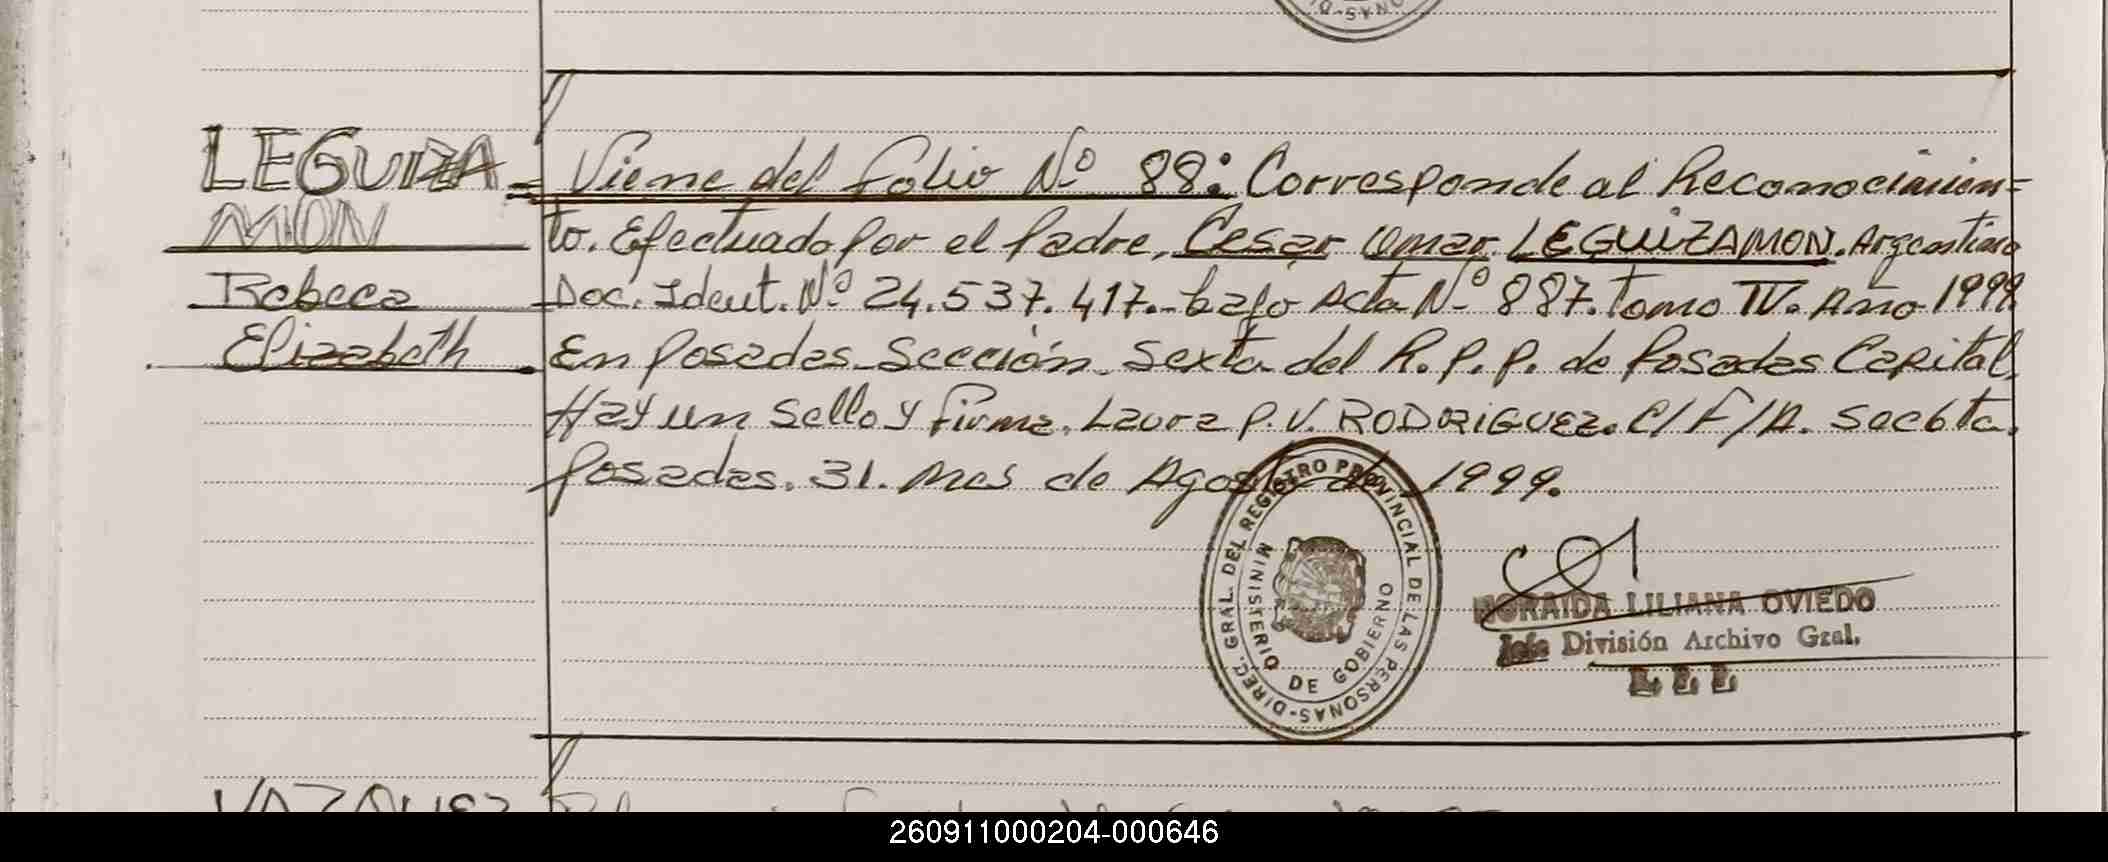 LEGUIZA=
MON
Rebeca
Elizabeth
Viene del folio Nº 88: Corresponde al Reconocimien=
to. Efectuado por el Padre, Cesar Omar LEGUIZAMON. Argentino
Doc. Ident. Nº 24.537.417.- bajo Acta Nº 887. Tomo IV. Año 1999
En Posadas. Sección. Sexta del R.P.P. de Posadas Capital.
Hay un Sello y firma. Laura P.V. RODRIGUEZ. C/F/A. Sec 6ta.
Posadas. 31. Mes de Agosto de 1999.
DIREC. GRAL. DEL REGISTRO PROVINCIAL DE LAS PERSONAS-
MINISTERIO DE GOBIERNO
NORAIDA LILIANA OVIEDO
Jefe División Archivo Gral.
VAZQUEZ
260911000204-000646